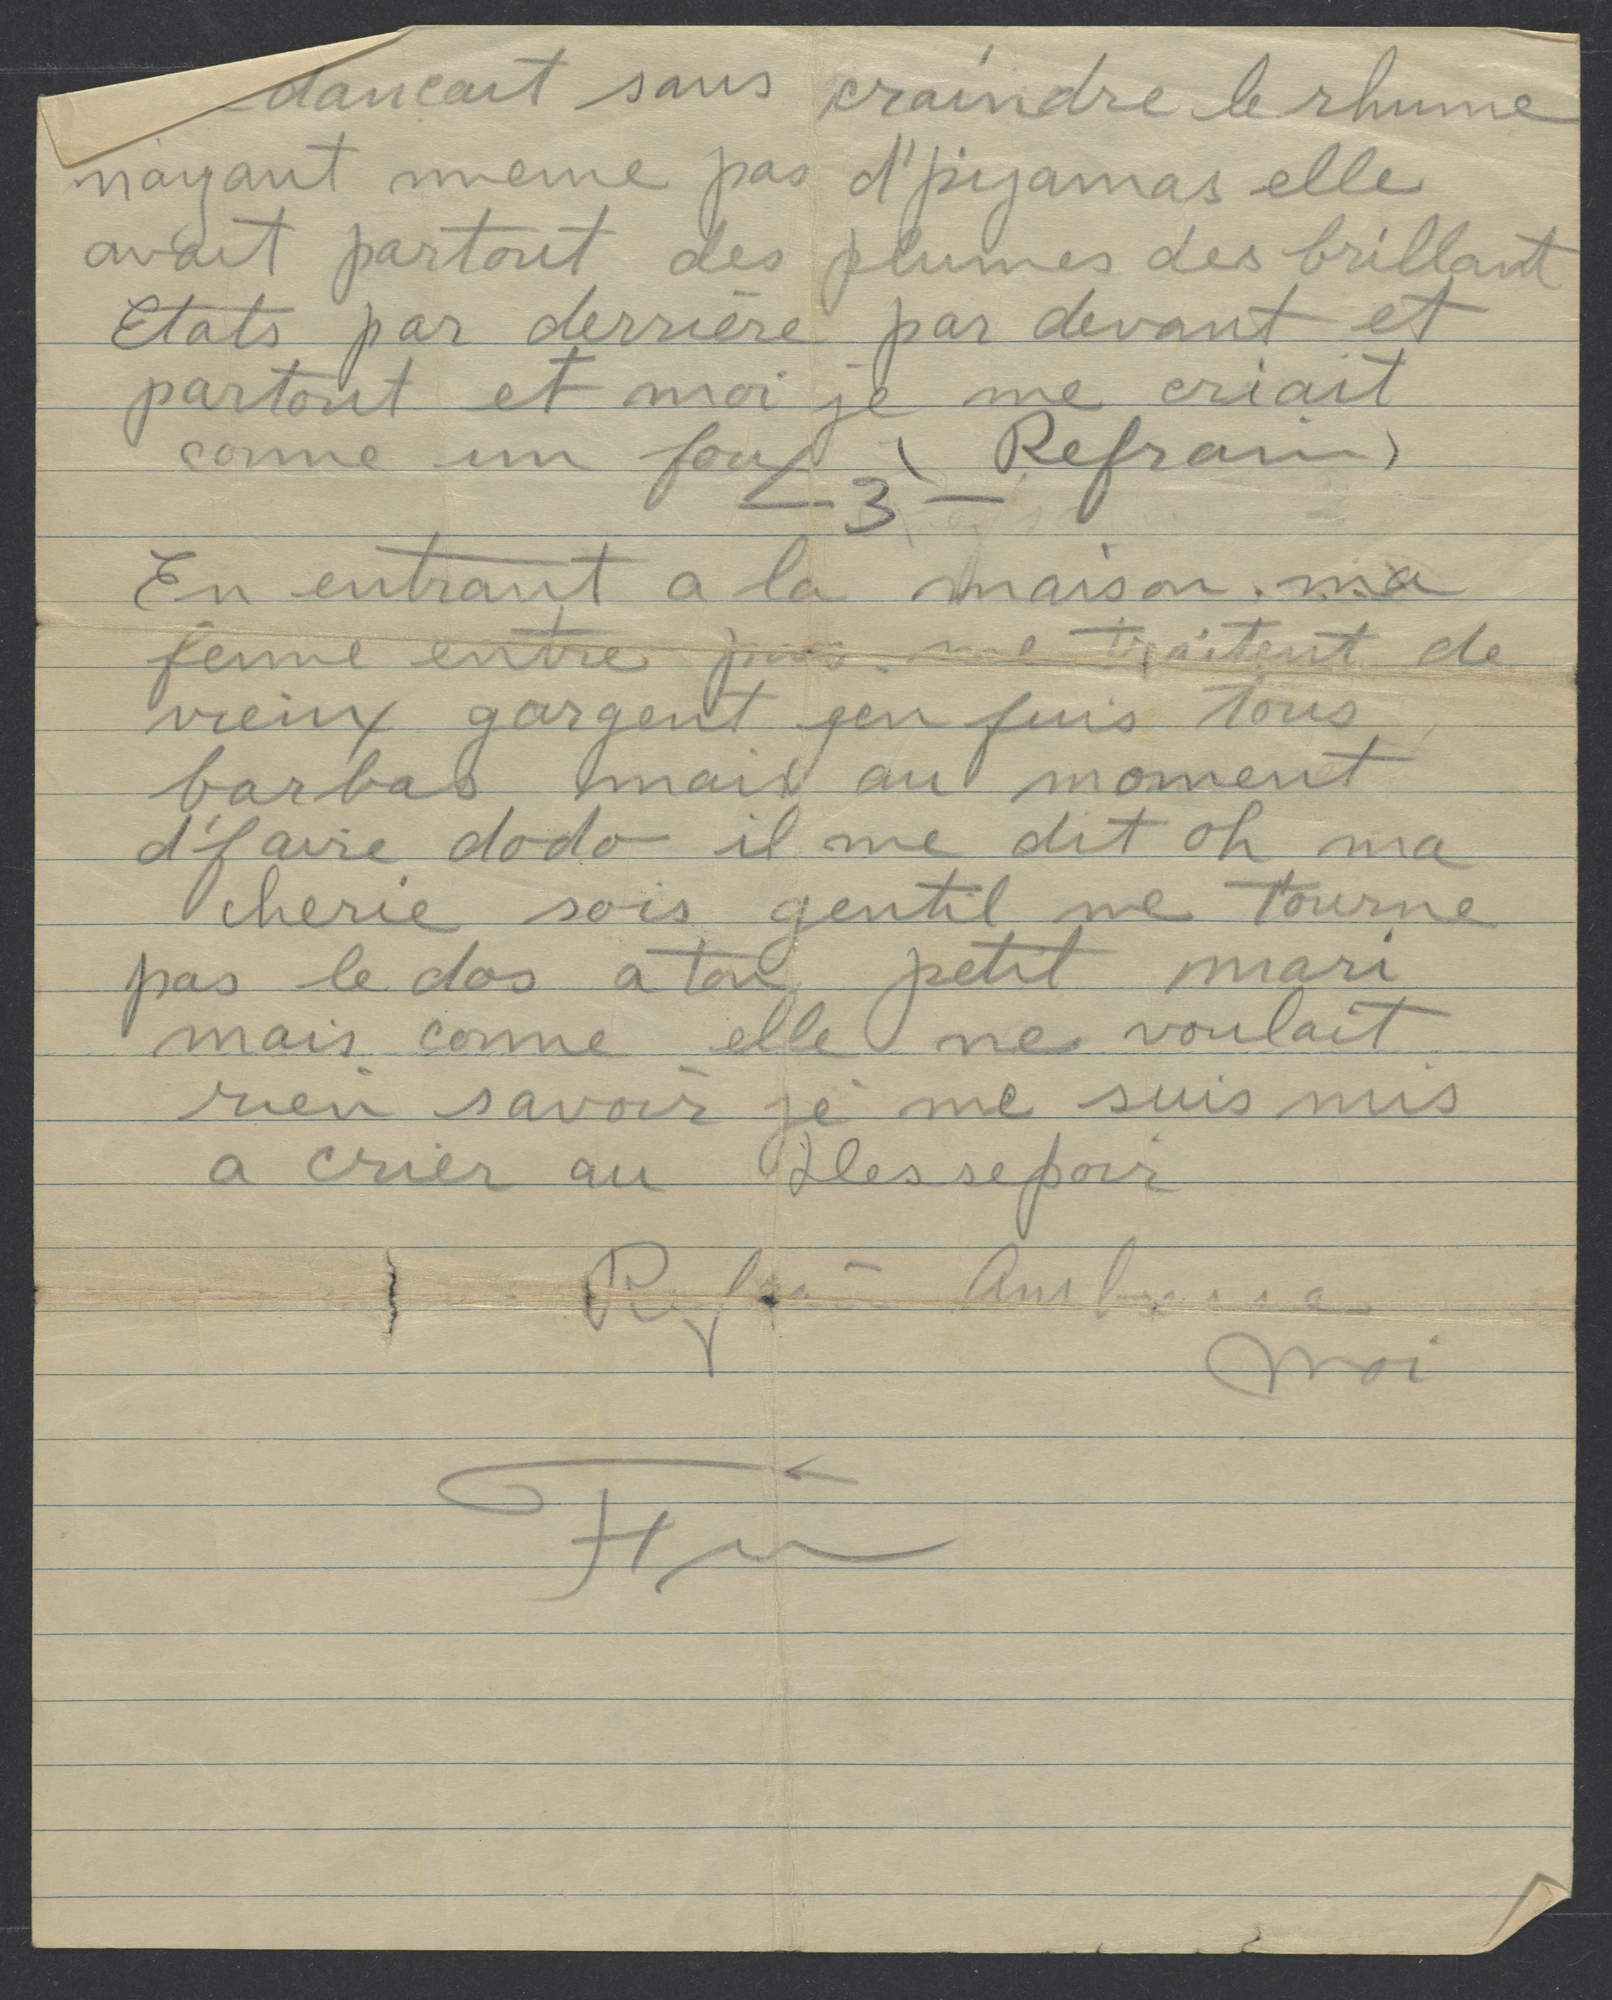 dancait sans craindre le rhume
n'ayant meme pas d'pyjamas elle
avait partout des plumes des brillant
Etats par derrière par devant et
partout et moi je me criait
comme un fou (Refrain)
— 3 —
En entrant a la maison ma
femme entre pas me traitent de
vieux gargent j'en fuis tous
barbas mais au moment
d'faire dodo il me dit oh ma
cherie sois gentil me tourne
pas le dos a ton petit mari
mais comme elle ne voulait
rien savoir je me suis mis
a crier au dessepoir
Refrain Ambrasse
moi
Fin